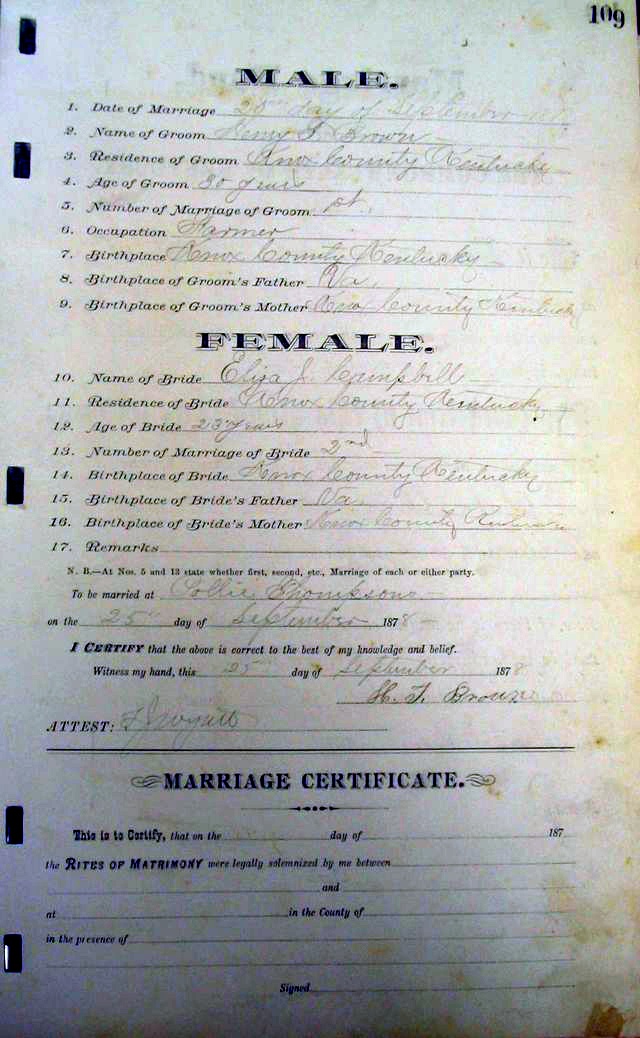 109
MALE.
1. Date of Marriage 25th day of September
2. Name of Groom Henry T. Brown
3. Residence of Groom Knox County Kentucky
4. Age of Groom 30 years
5. Number of Marriage of Groom
6. Occupation Farmer
7. Birthplace Knox County Kentucky
8. Birthplace of Groom's Father Va.
9. Birthplace of Groom's Mother Knox County Kentucky
FEMALE.
10. Name of Bride Eliza J. Campbill
11. Residence of Bride Knox County Kentucky
12. Age of Bride 23 years
13. Number of Marriage of Bride 2nd
14. Birthplace of Bride Knox County Kentucky
15. Birthplace of Bride's Father Va.
16. Birthplace of Bride's Mother Knox County
17. Remarks
N. B.—At Nos. 5 and 13 state whether first, second, etc., Marriage of each or either party.
To be married at Thompsons
on the 25th day of September 1878
I CERTIFY that the above is correct to the best of my knowledge and belief.
Witness my hand, this 25th day of September 1878
H. T. Brown
ATTEST:
MARRIAGE CERTIFICATE.
This is to Certify, that on the day of 187
the RITES OF MATRIMONY were legally solemnized by me between
and
at in the County of
in the presence of
Signed